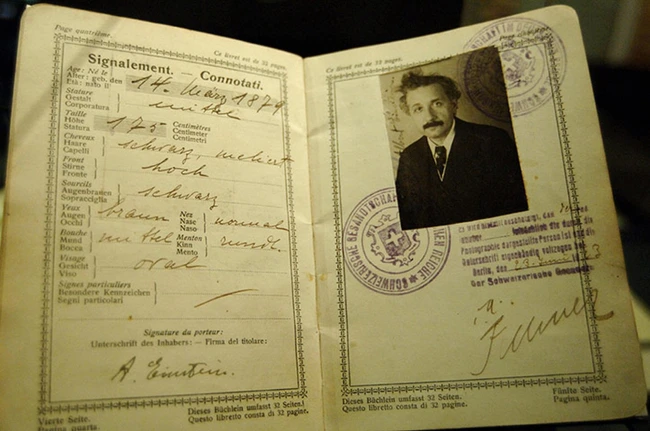 Page quatrième.
Ce livret est de 32 pages.
Signalement. — Connotati.
Age: Né le
Alter: geb. den 14. März 1879
Età: nato il
Stature
Gestalt mittel
Corporatura
Taille
Höhe 175 Centimètres
Statura Centimeter
Centimetri
Cheveux
Haare schwarz, meliert
Capelli
Front
Stirne hoch
Fronte
Sourcils
Augenbrauen schwarz
Sopracciglia
Yeux Nez
Augen braun Nase normal
Occhi Naso
Bouche Menton
Mund mittel Kinn rund
Bocca Mento
Visage
Gesicht oval
Viso
Signes particuliers
Besondere Kennzeichen
Segni particolari
Signature du porteur:
Unterschrift des Inhabers: — Firma del titolare:
A. Einstein.
Vierte Seite. Dieses Büchlein umfasst 32 Seiten.
Pagina quarta. Questo libretto consta di 32 pagine.
Ce livret est de 32 pages.
SCHWEIZERISCHE GESANDTSCHAFT
REICHE
Photographie dargestellte Person ist und die
Unterschrift eigenhändig vollzogen hat
Berlin, den
der Schweizerische Gesandte
Dieses Büchlein umfasst 32 Seiten. Fünfte Seite.
Questo libretto consta di 32 pagine. Pagina quinta.